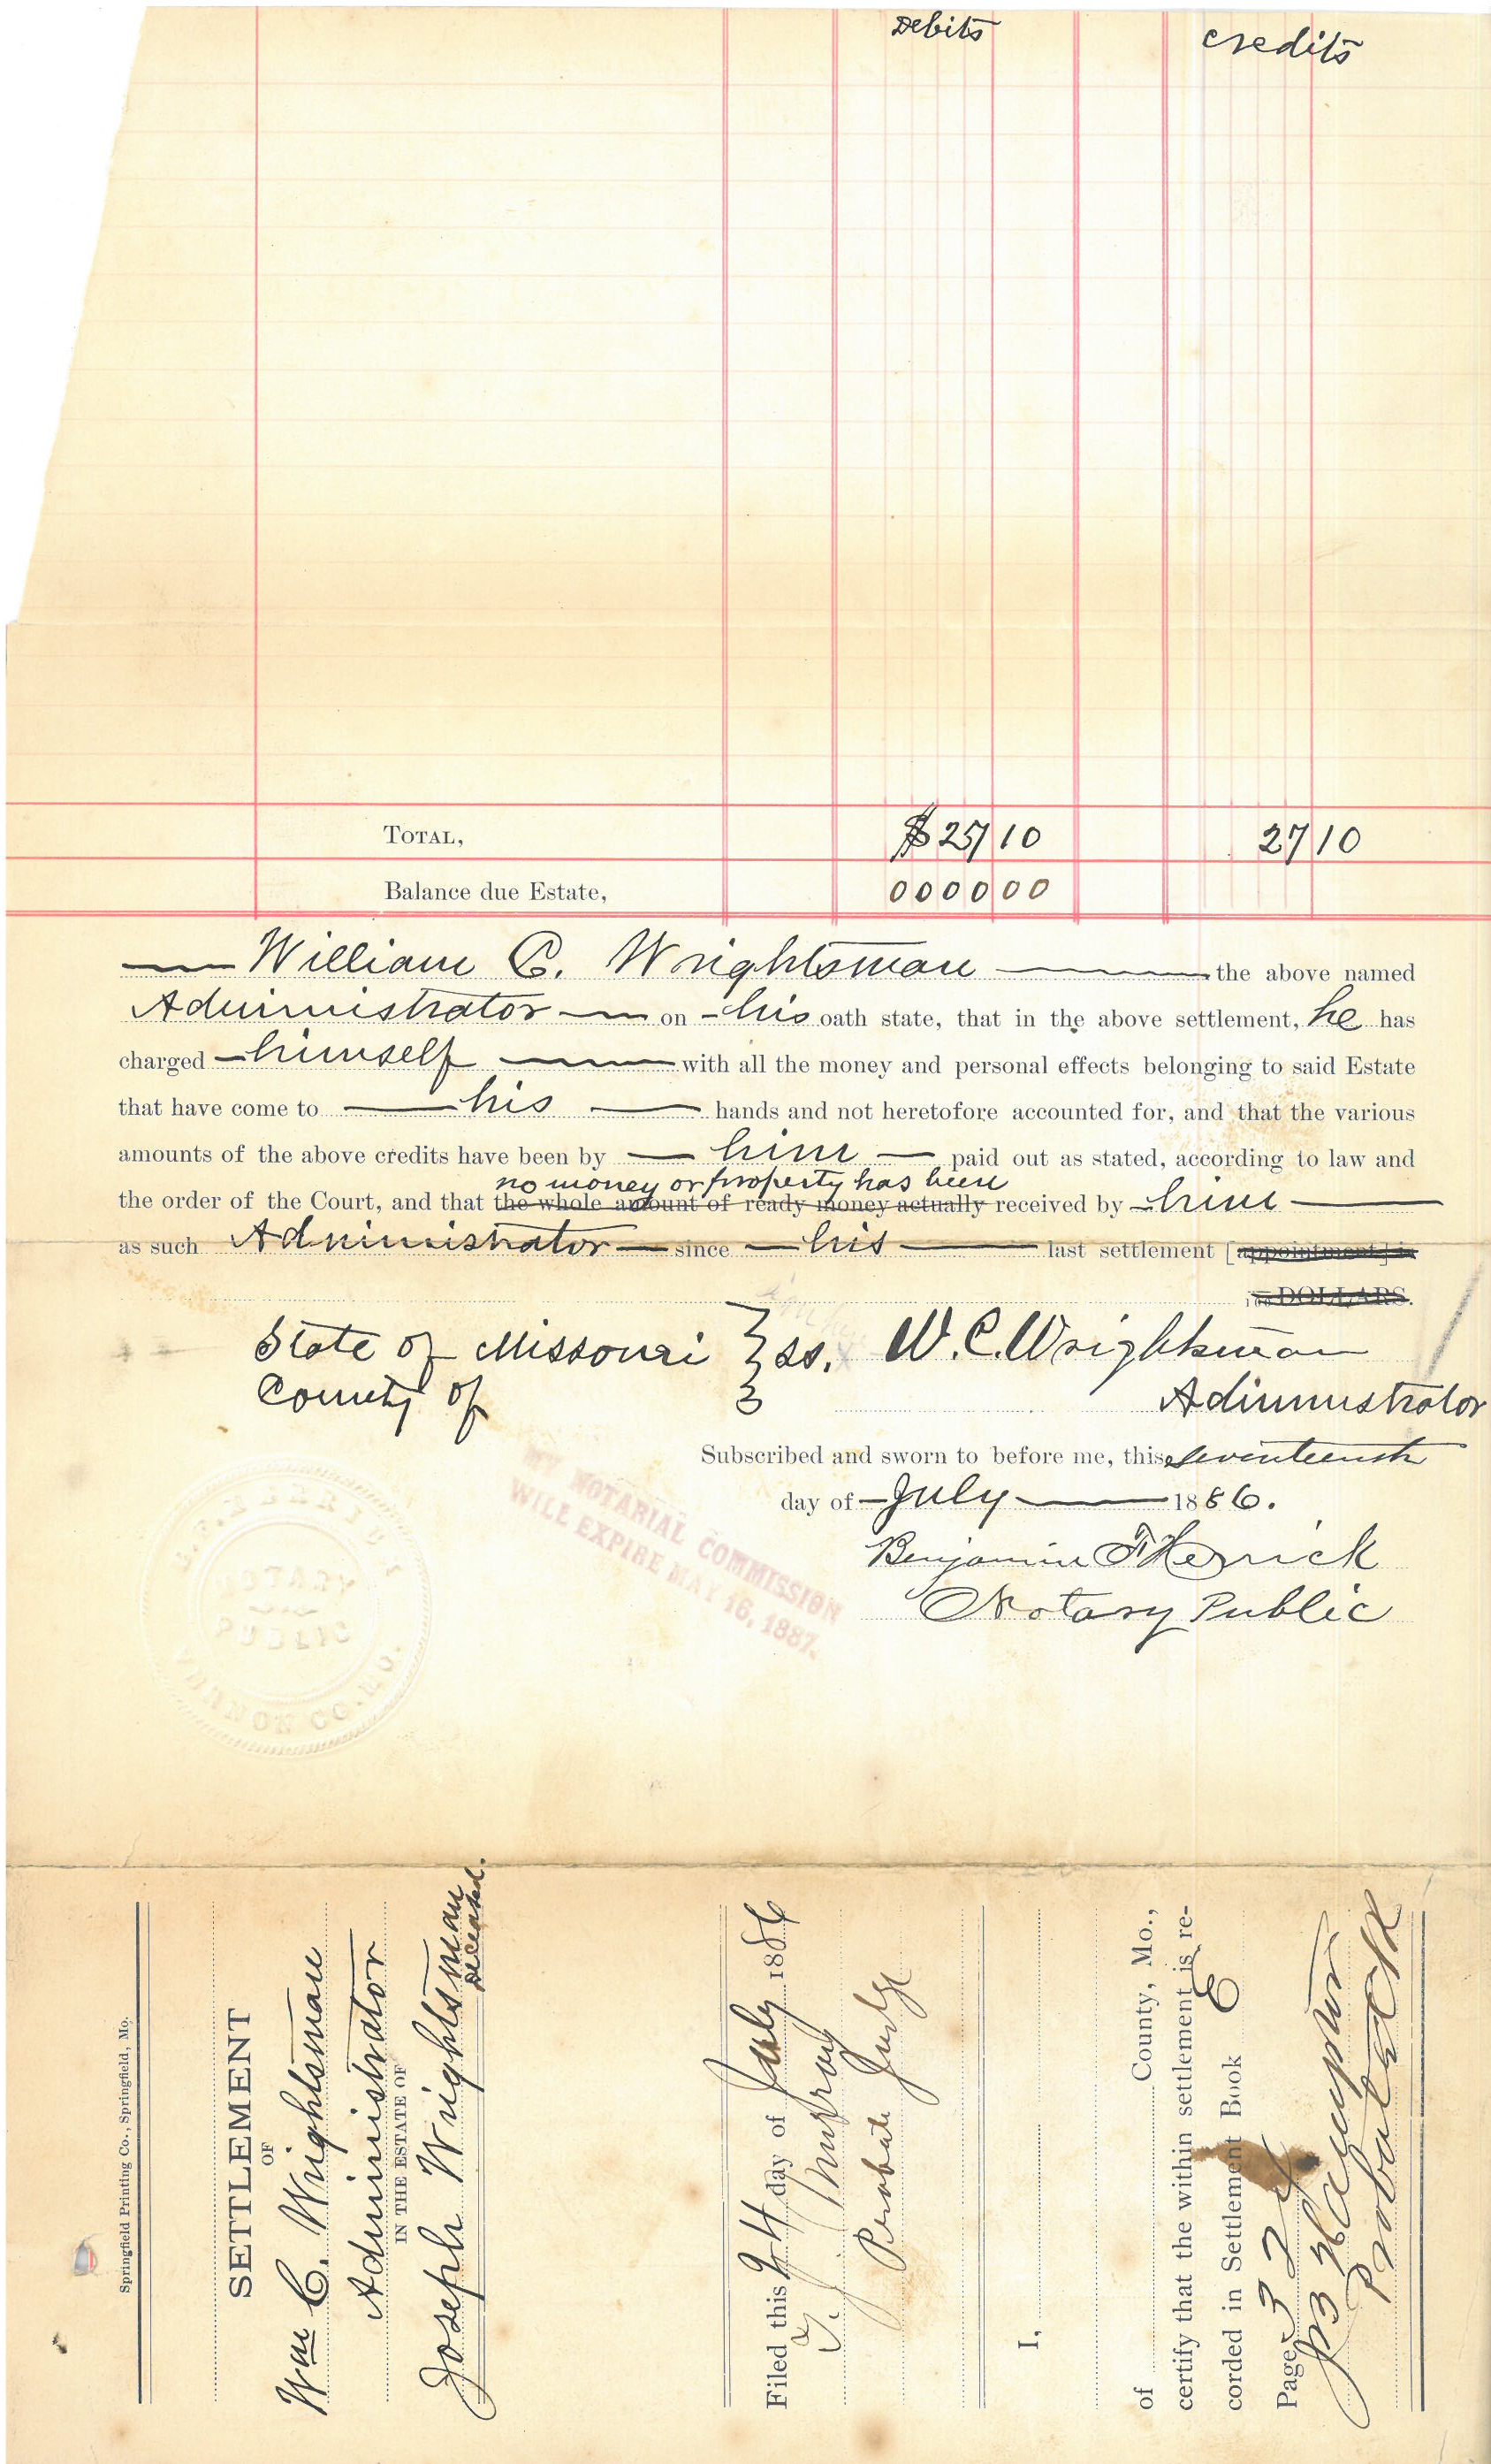 Debits credits
TOTAL, $ 25 10 27 10
Balance due Estate, 0000 00
William C. Wrightsman the above named
Administrator on his oath state, that in the above settlement, he has
charged himself with all the money and personal effects belonging to said Estate
that have come to his hands and not heretofore accounted for, and that the various
amounts of the above credits have been by him paid out as stated, according to law and
no money or property has been
the order of the Court, and that the whole amount of ready money actually received by him
as such Administrator since his last settlement [appointment] is
100 DOLLARS.
State of Missouri } ss. W. C. Wrightsman
County of Administrator
Subscribed and sworn to before me, this seventeenth
day of July 1886.
Benjamin F Herrick
Notary Public
MY NOTARIAL COMMISSION
WILL EXPIRE MAY 16, 1887.
NOTARY
PUBLIC
VERNON CO. MO.
Springfield Printing Co., Springfield, Mo.
SETTLEMENT
OF
Wm C. Wrightsman
Administrator
IN THE ESTATE OF
Joseph Wrightsman
Deceased.
Filed this 24 day of July 1886
Probate Judge
I,
of County, Mo.,
certify that the within settlement is re-
corded in Settlement Book E
Page
Probate